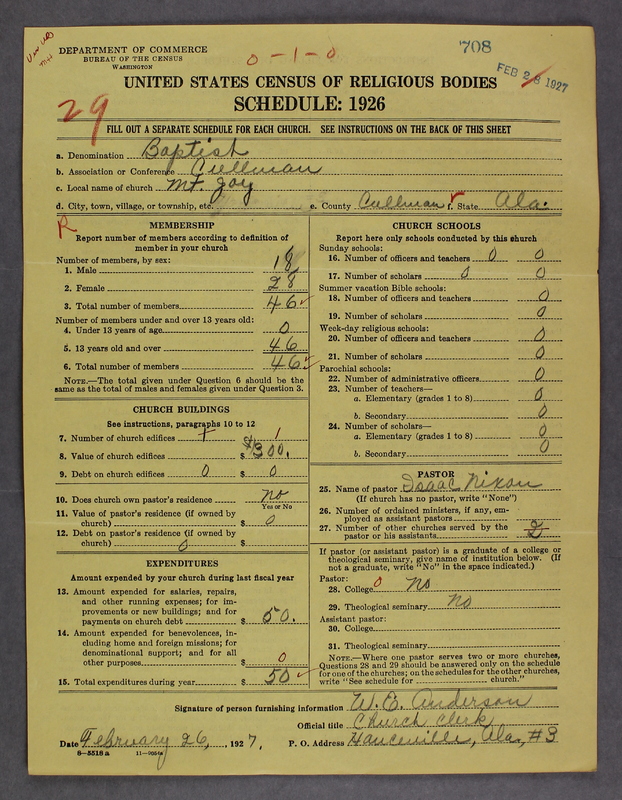 DEPARTMENT OF COMMERCE
BUREAU OF THE CENSUS
WASHINGTON
0-1-0
708
FEB 28 1927
UNITED STATES CENSUS OF RELIGIOUS BODIES
SCHEDULE: 1926
29
FILL OUT A SEPARATE SCHEDULE FOR EACH CHURCH. SEE INSTRUCTIONS ON THE BACK OF THIS SHEET
a. Denomination Baptist
b. Association or Conference Cullman
c. Local name of church Mt. Joy
d. City, town, village, or township, etc.
e. County Cullman f. State Ala.
R
MEMBERSHIP
Report number of members according to definition of
member in your church
Number of members, by sex:
1. Male 18
2. Female 28
3. Total number of members 46
Number of members under and over 13 years old:
4. Under 13 years of age 0
5. 13 years old and over 46
6. Total number of members 46
NOTE.—The total given under Question 6 should be
same as the total of males and females given under Question 3.
CHURCH BUILDINGS
See instructions, paragraphs 10 to 12
7. Number of church edifices 1 1
8. Value of church edifices $ $300.
9. Debt on church edifices 0 $ 0
10. Does church own pastor's residence no
Yes or No
11. Value of pastor's residence (if owned by
church) $ 0
12. Debt on pastor's residence (if owned by
church) 0 $
EXPENDITURES
Amount expended by your church during last fiscal year
13. Amount expended for salaries, repairs,
and other running expenses; for im-
provements or new buildings; and for
payments on church debt $ 50.
14. Amount expended for benevolences, in-
cluding home and foreign missions; for
denominational support; and for all
other purposes $ 0
15. Total expenditures during year $ 50
CHURCH SCHOOLS
Report here only schools conducted by this church
Sunday schools:
16. Number of officers and teachers 0 0
17. Number of scholars 0 0
Summer vacation Bible schools:
18. Number of officers and teachers 0
19. Number of scholars 0
Week-day religious schools:
20. Number of officers and teachers 0
21. Number of scholars 0
Parochial schools:
22. Number of administrative officers 0
23. Number of teachers—
a. Elementary (grades 1 to 8) 0
b. Secondary 0
24. Number of scholars—
a. Elementary (grades 1 to 8) 0
b. Secondary 0
PASTOR
25. Name of pastor Isaac Nixon
(If church has no pastor, write "None")
26. Number of ordained ministers, if any, em-
ployed as assistant pastors
27. Number of other churches served by the
pastor or his assistants 2
If pastor (or assistant pastor) is a graduate of a college or
theological seminary, give name of institution below. (If
not a graduate, write "No" in the space indicated.)
Pastor:
28. College 0 no
29. Theological seminary no
Assistant pastor:
30. College
31. Theological seminary
NOTE.—Where one pastor serves two or more churches,
Questions 28 and 29 should be answered only on the schedule
for one of the churches; on the schedules for the other churches,
write "See schedule for church."
Signature of person furnishing information W. E. Anderson
Official title Church Clerk
Date February 26, 1927. P. O. Address Hanceville, Ala, #3
8-5518 a